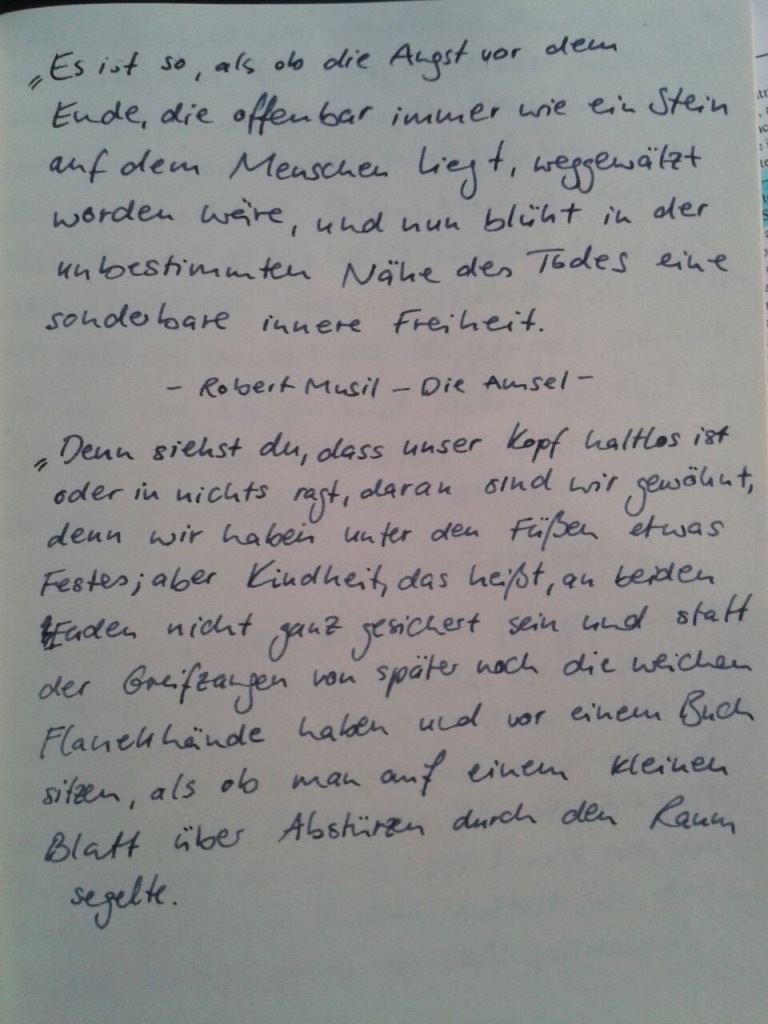 „Es ist so, als ob die Angst vor dem
Ende, die offenbar immer wie ein Stein
auf dem Menschen liegt, weggewälzt
worden wäre, und nun blüht in der
unbestimmten Nähe des Todes eine
sonderbare innere Freiheit.
- Robert Musil - Die Amsel -
„Denn siehst du, dass unser Kopf haltlos ist
oder in nichts ragt, daran sind wir gewöhnt,
denn wir haben unter den Füßen etwas
Festes; aber Kindheit, das heißt, an beiden
Enden nicht ganz gesichert sein und statt
der Greifzangen von später noch die weichen
Flanellhände haben und vor einem Buch
sitzen, als ob man auf einem kleinen
Blatt über Abstürzen durch den Raum
segelte.